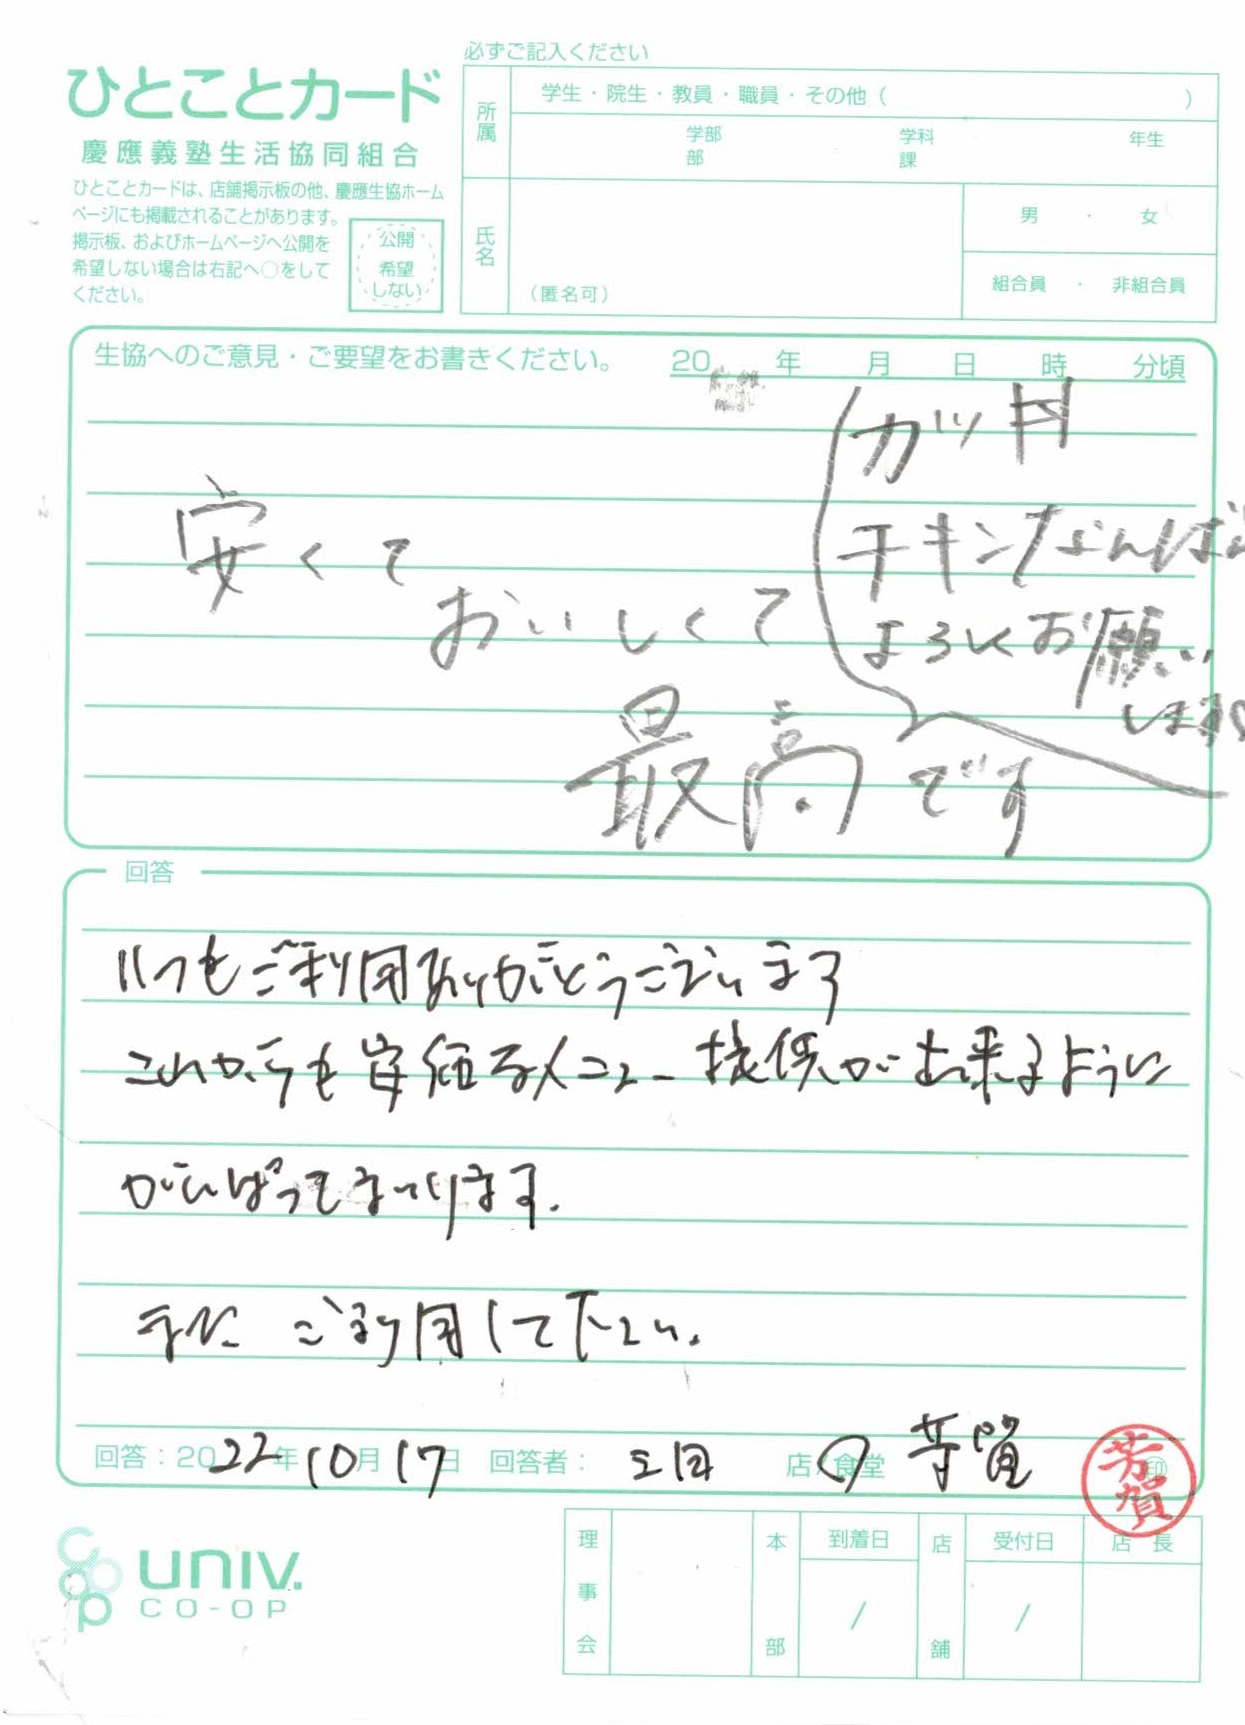 ひとことカード
慶應義塾生活協同組合
ひとことカードは、店舗掲示板の他、慶應生協ホーム
ページにも掲載されることがあります。
掲示板、およびホームページへ公開を
希望しない場合は右記へ○をして
ください。
公開
希望
しない
必ずご記入ください
所属
学生・院生・教員・職員・その他（ ）
学部 学科 年生
部 課
氏名
（匿名可）
男 ・ 女
組合員 ・ 非組合員
生協へのご意見・ご要望をお書きください。 20 年 月 日 時 分頃
安くて
おいしくて
最高です
カツ丼
チキンなんばん
よろしくお願い
します
回答
いつもご利用ありがとうございます
これからも安価なメニュー提供が出来るように
がんばってまいります.
また ご利用して下さい.
回答：2022年10月17日 回答者： 三田 店・食堂 芳賀 印
芳賀
univ.
CO-OP
理事会
本部
到着日
/
店舗
受付日
/
店長